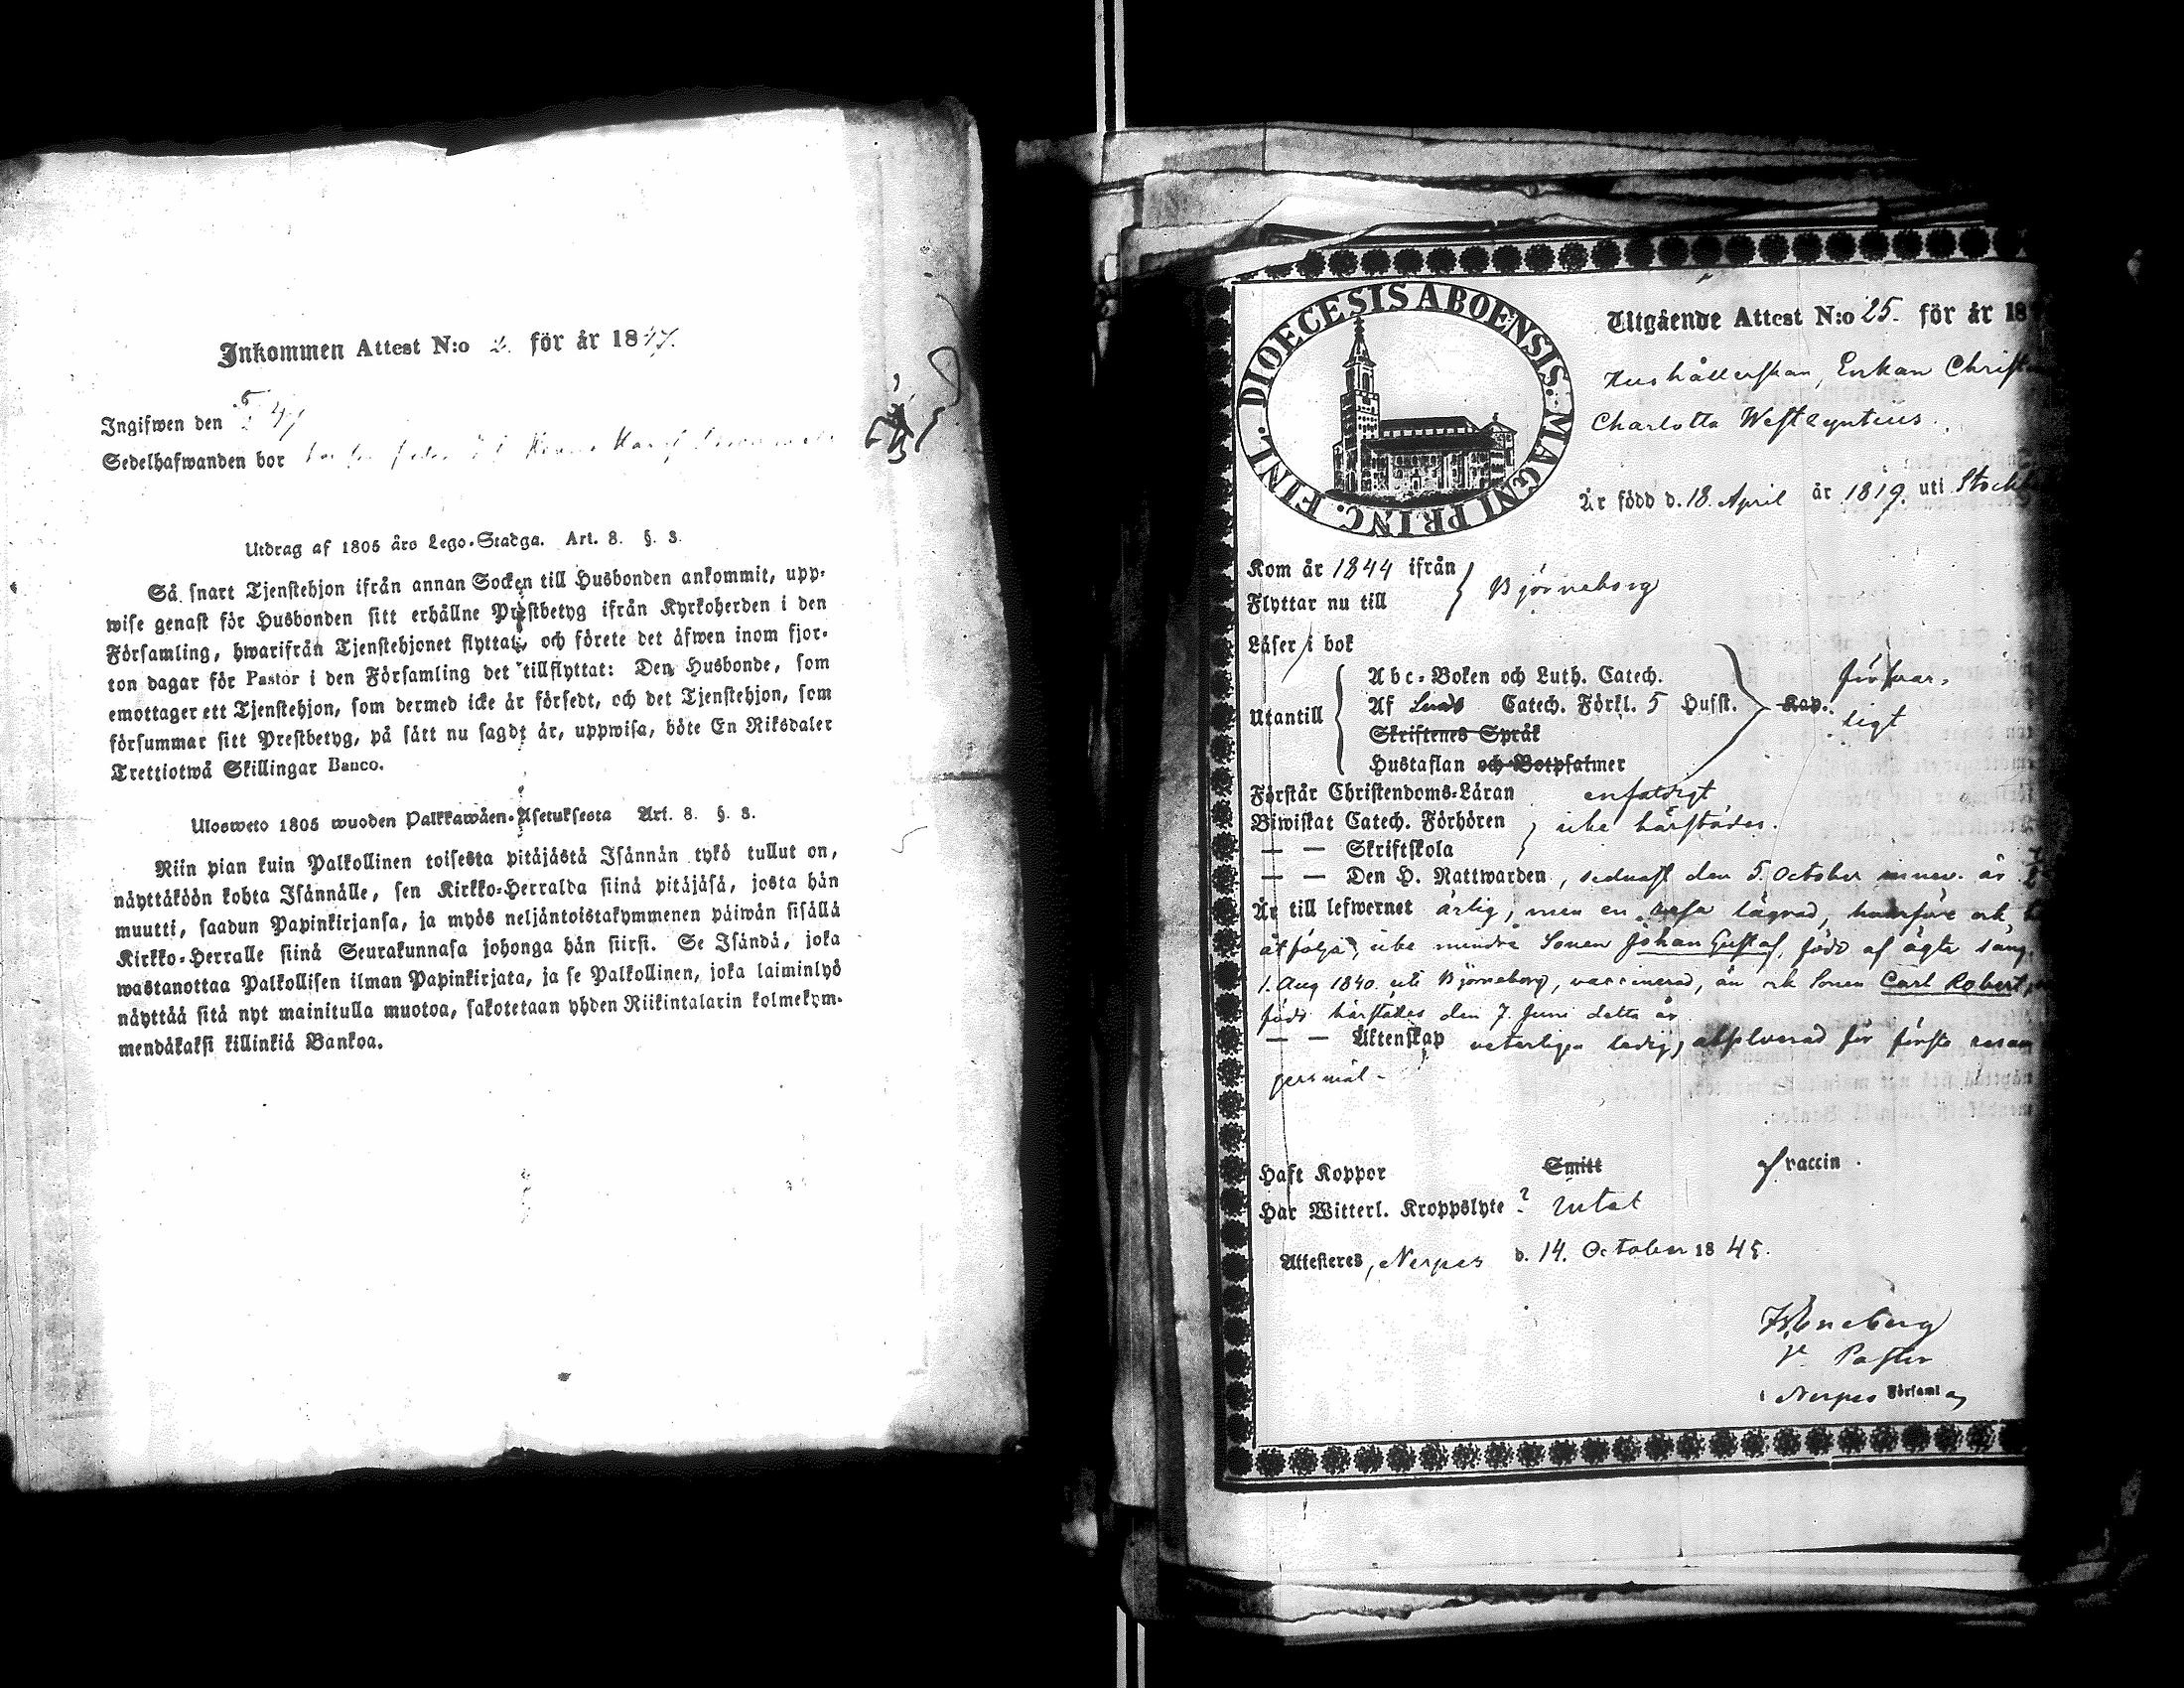 Inkommen Attest N:o 2. för år 1847.
Ingifwen den 5/5 47
Sedelhafwanden bor
Utdrag af 1805 års Lego-Stadga. Art. 8. §. 3.
Så snart Tjenstehjon ifrån annan Socken till Husbonden ankommit, upp-
wise genast för Husbonden sitt erhållne Prestbetyg ifrån Kyrkoherden i den
Församling, hwarifrån Tjenstehjonet flyttat, och förete det äfwen inom fjor-
ton dagar för Pastor i den Församling det tillflyttat: Den Husbonde, som
emottager ett Tjenstehjon, som dermed icke är försedt, och det Tjenstehjon, som
försummar sitt Prestbetyg, på sätt nu sagdt är, uppwisa, böte En Riksdaler
Trettiotwå Skillingar Banco.
Ulosweto 1805 wuoden Palkkawäen-Asetuksesta Art. 8. §. 3.
Niin pian kuin Palkollinen toisesta pitäjästä Isännän tykö tullut on,
näyttäköön kohta Isännälle, sen Kirkko-Herralda siinä pitäjäsä, josta hän
muutti, saadun Papinkirjansa, ja myös neljäntoistakymmenen päiwän sisällä
Kirkko-Herralle siinä Seurakunnasa johonga hän siirsi. Se Isändä, joka
wastanottaa Palkollisen ilman Papinkirjata, ja se Palkollinen, joka laiminlyö
näyttää sitä nyt mainitulla muotoa, sakotetaan yhden Riikintalarin kolmekym-
mendäkaksi killinkiä Bankoa.
DIOECESIS ABOENSIS. MAGNI PRINC. FINL.
Utgående Attest N:o 25. för år 18
Hushållerskan, Enkan
Charlotta Westzynteus.
Är född d. 18 April år 1819. uti
Kom år 1844 ifrån
Flyttar nu till } Björneborg
Läser i bok
Abc-Boken och Luth. Catech.
Utantill Af Catech. Förkl. 5 Husst. Kap. försvar-
ligt
Skriftenes Språk
Hustaflan och Botpsalmer
Förstår Christendoms-Läran enfaldigt
Biwistat Catech. Förhören icke härstädes.
— — Skriftskola
— — Den H. Nattwarden, sednast den 5. October innev. år
Är till lefwernet ärlig, men en lägrad, hvarföre ock
åtföljes, icke mindre Sonen Johan Gustaf, född af ägta säng
1. Aug 1840. uti Björneborg, vaccinerad, än ock Sonen Carl Robert,
född härstädes den 7. Juni detta år.
— — Äktenskap veterligen ledig, absolverad för första resan
Haft Koppor Smitt af vaccin.
Har Witterl. Kroppslyte? Intet
Attesteres, Nerpes d. 14. October 1845.
V. Pastor
i Nerpes Församl